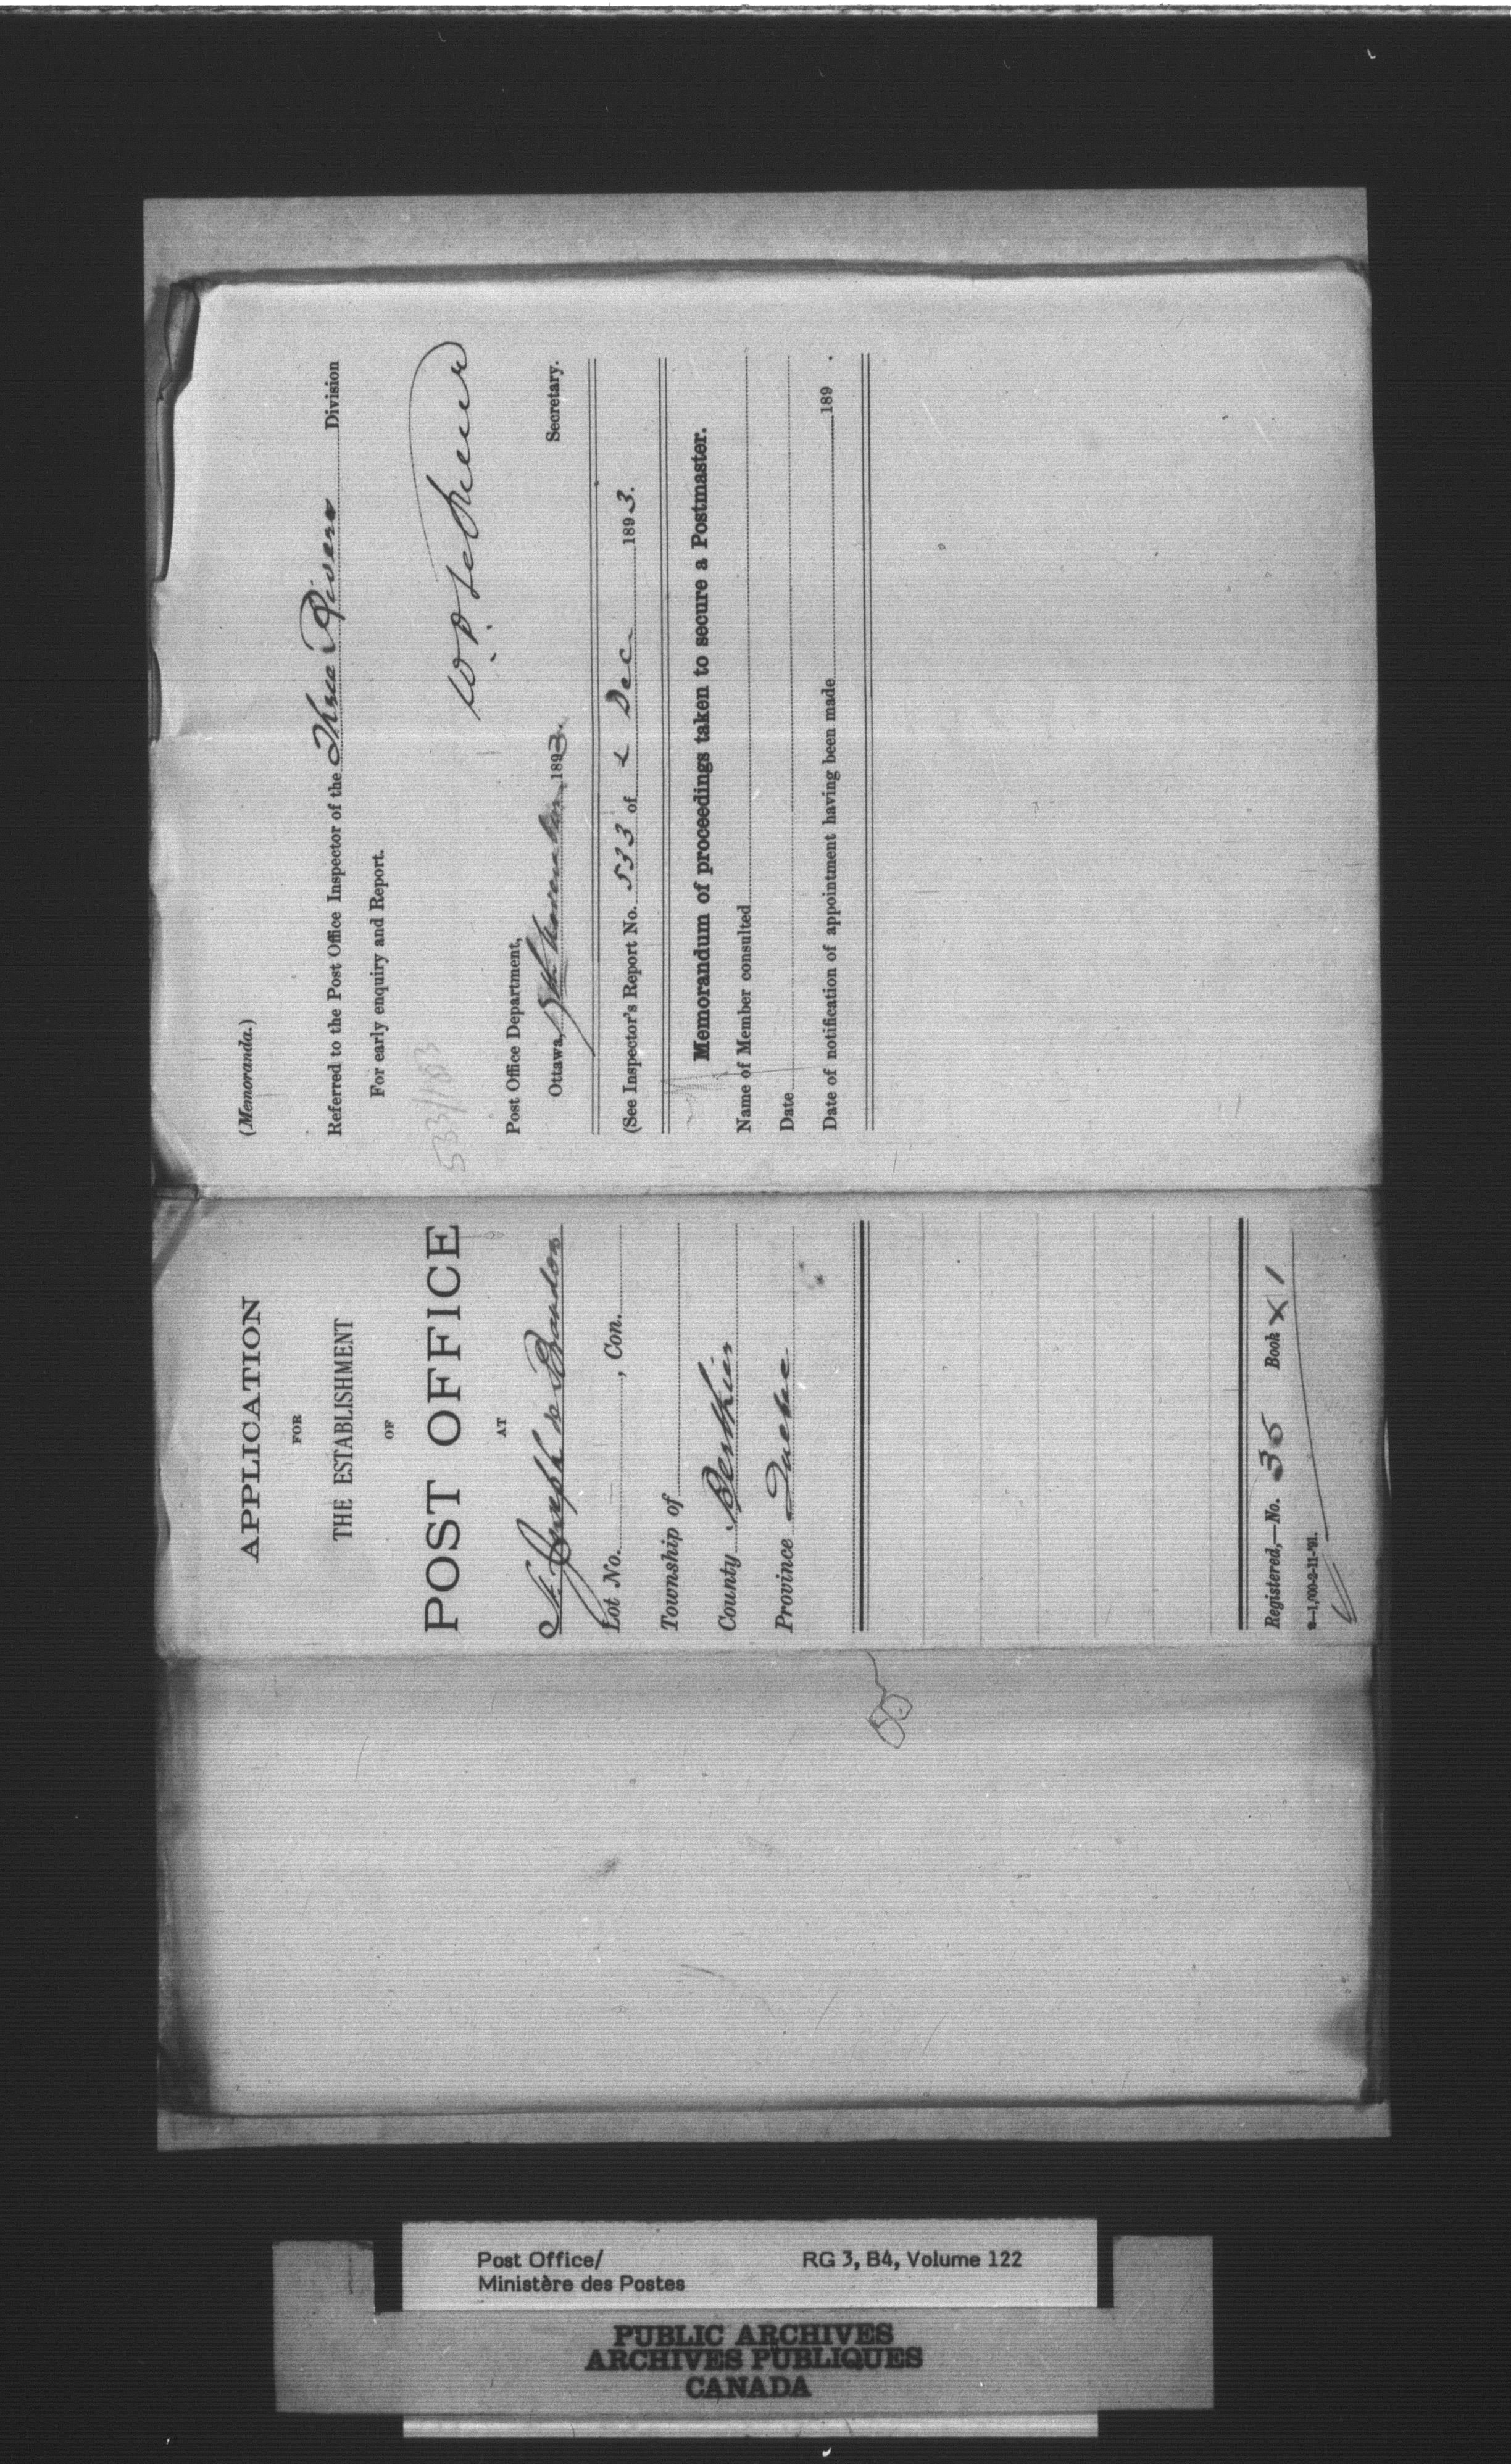 (Memoranda.)
Referred to the Post Office Inspector of the Three Rivers Division
For early enquiry and Report.
533/183
Secretary.
Post Office Department,
Ottawa, November 1893.
(See Inspector's Report No. 533 of 2 Dec 1893.
Memorandum of proceedings taken to secure a Postmaster.
Name of Member consulted
Date
Date of notification of appointment having been made 189 .
APPLICATION
FOR
THE ESTABLISHMENT
OF
POST OFFICE
AT
St. Joseph de Brandon
Lot No. , Con.
Township of
County Berthier
Province Quebec
Registered,—No. 35 Book X1
Post Office/
Ministère des Postes
RG 3, B4, Volume 122
PUBLIC ARCHIVES
ARCHIVES PUBLIQUES
CANADA